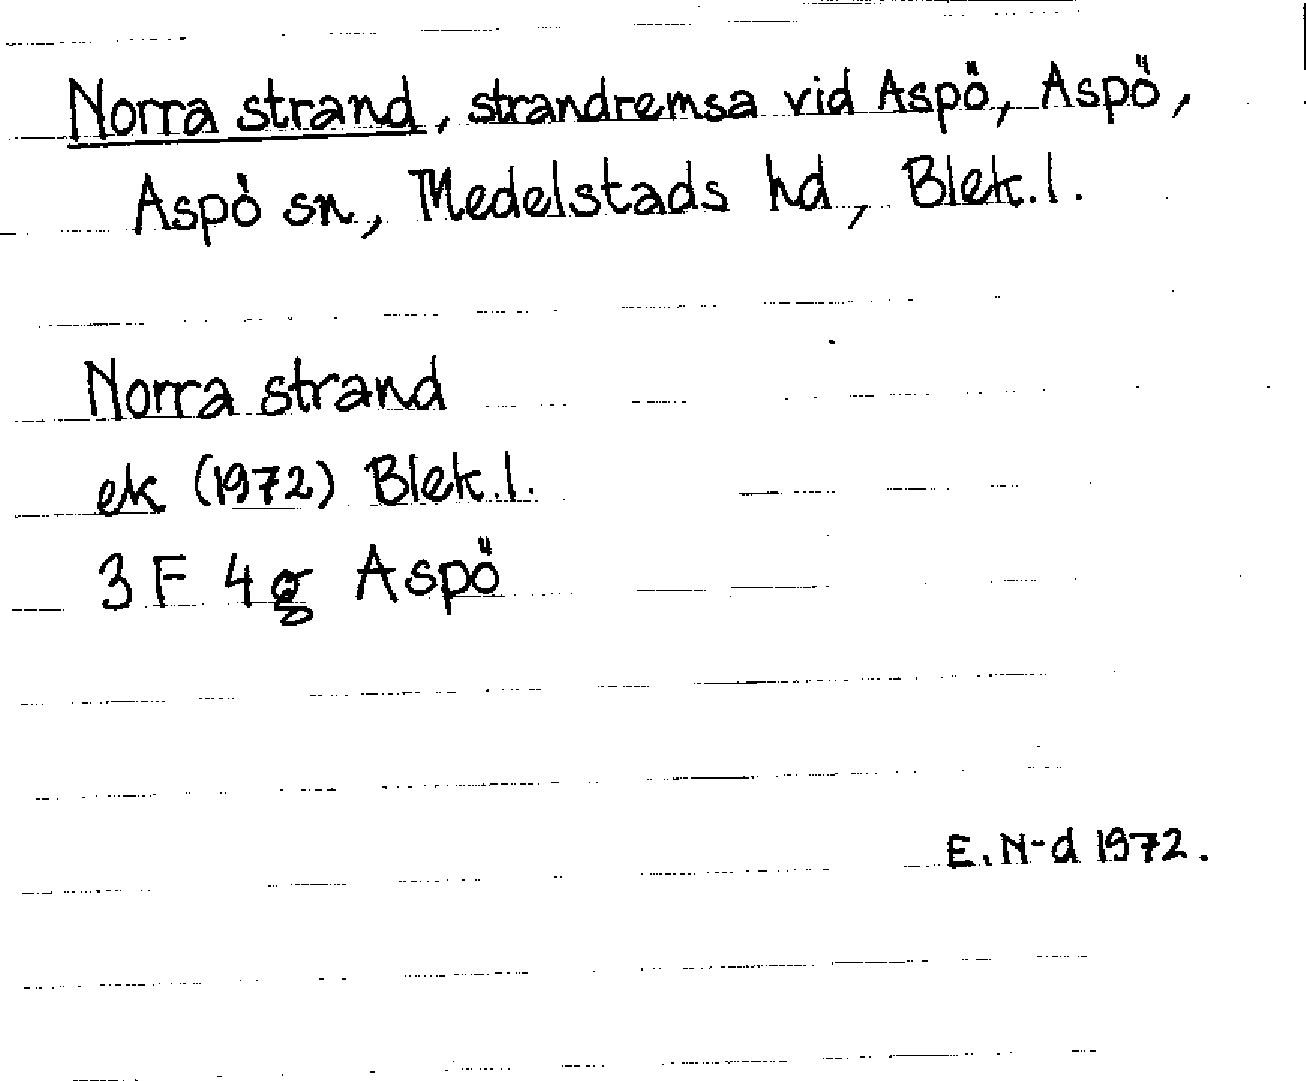 Norra strand, strandremsa vid Aspö, Aspö,
Aspö sn, Medelstads hd, Blek.l.
Norra strand
ek (1972) Blek.l.
3 F 4 g Aspö
E.N-d 1972.